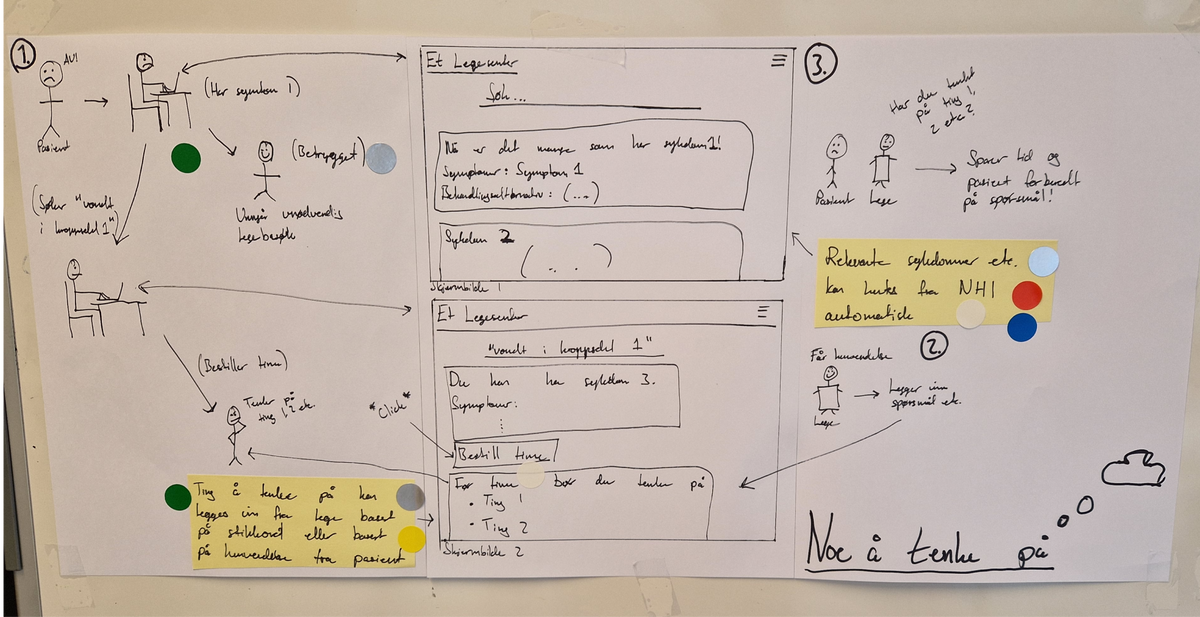 1.
AU!
Pasient
(Har symptom 1)
(Betrygget)
Unngår unødvendig
legebesøk
(Søker "vondt
i kroppsdel 1")
(Bestiller time)
Tenker på
ting 1, 2 etc.
*Click*
Ting å tenke på kan
legges inn fra lege basert
på stikkord eller basert
på henvendelse fra pasient
Et Legesenter
Søk...
Nå er det mange som har sykdom 1!
Symptomer: Symptom 1
Behandlingsalternativ: (...)
Sykdom 2
(...)
Skjermbilde 1
Et Legesenter
"vondt i kroppsdel 1"
Du kan ha sykdom 3.
Symptomer:
Bestill time
Før timen bør du tenke på
• Ting 1
• Ting 2
Skjermbilde 2
3.
Har du tenkt
på ting 1,
2 etc?
Pasient Lege
Sparer tid og
pasient forberedt
på spørsmål!
Relevante sykdommer etc.
kan hentes fra NHI
automatisk
2.
Får henvendelse
Lege
Legger inn
spørsmål etc.
Noe å tenke på